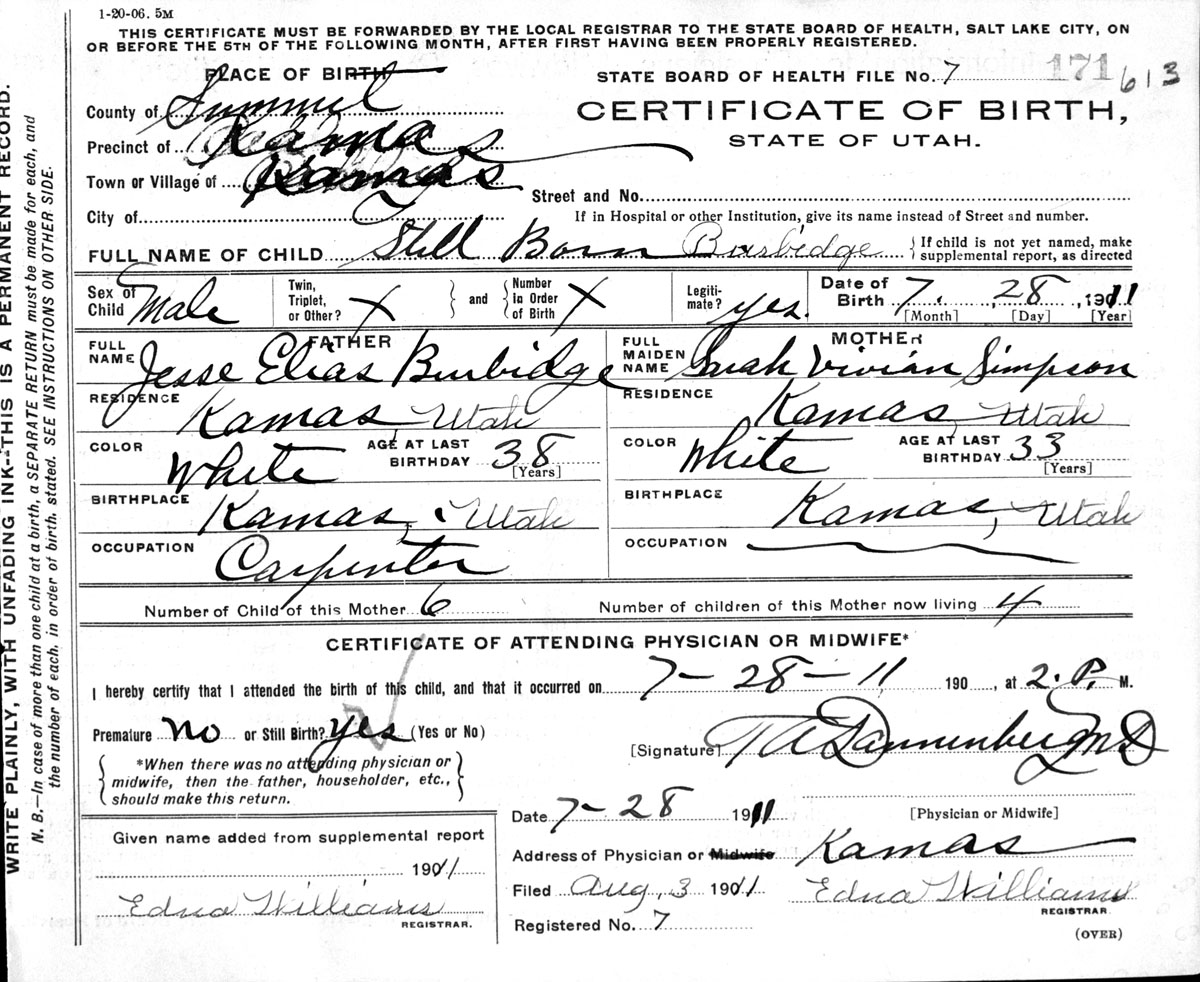 1-20-06. 5M
THIS CERTIFICATE MUST BE FORWARDED BY THE LOCAL REGISTRAR TO THE STATE BOARD OF HEALTH, SALT LAKE CITY, ON
OR BEFORE THE 5TH OF THE FOLLOWING MONTH, AFTER FIRST HAVING BEEN PROPERLY REGISTERED.
PLACE OF BIRTH
STATE BOARD OF HEALTH FILE No. 7 171 613
County of Summit
CERTIFICATE OF BIRTH,
Precinct of Kamas
STATE OF UTAH.
Town or Village of Kamas
Street and No.
City of
If in Hospital or other Institution, give its name instead of Street and number.
FULL NAME OF CHILD Still Born Burbidge { If child is not yet named, make supplemental report, as directed
Sex of Child Male Twin, Triplet, or Other? X } and { Number in Order of Birth X Legitimate? yes. Date of Birth 7. 28, 1911
[Month] [Day] [Year]
FATHER
MOTHER
FULL NAME Jesse Elias Burbidge
FULL MAIDEN NAME Sarah Vivian Simpson
RESIDENCE Kamas, Utah
RESIDENCE Kamas, Utah
COLOR White AGE AT LAST BIRTHDAY 38 [Years]
COLOR White AGE AT LAST BIRTHDAY 33 [Years]
BIRTHPLACE Kamas, Utah
BIRTHPLACE Kamas, Utah
OCCUPATION Carpenter
OCCUPATION
Number of Child of this Mother 6
Number of children of this Mother now living 4
CERTIFICATE OF ATTENDING PHYSICIAN OR MIDWIFE*
I hereby certify that I attended the birth of this child, and that it occurred on 7-28-11 190 , at 2. P. M.
Premature no or Still Birth? yes (Yes or No)
[Signature] T A Dannenberg M D
{ *When there was no attending physician or
midwife, then the father, householder, etc.,
should make this return. }
Date 7-28 1911
[Physician or Midwife]
Given name added from supplemental report
1901
Edna Williams
REGISTRAR.
Address of Physician or Midwife Kamas
Filed Aug, 3 1911 Edna Williams
REGISTRAR
Registered No. 7
(OVER)
WRITE PLAINLY, WITH UNFADING INK--THIS IS A PERMANENT RECORD.
N. B.—In case of more than one child at a birth, a SEPARATE RETURN must be made for each, and
the number of each, in order of birth, stated. SEE INSTRUCTIONS ON OTHER SIDE.